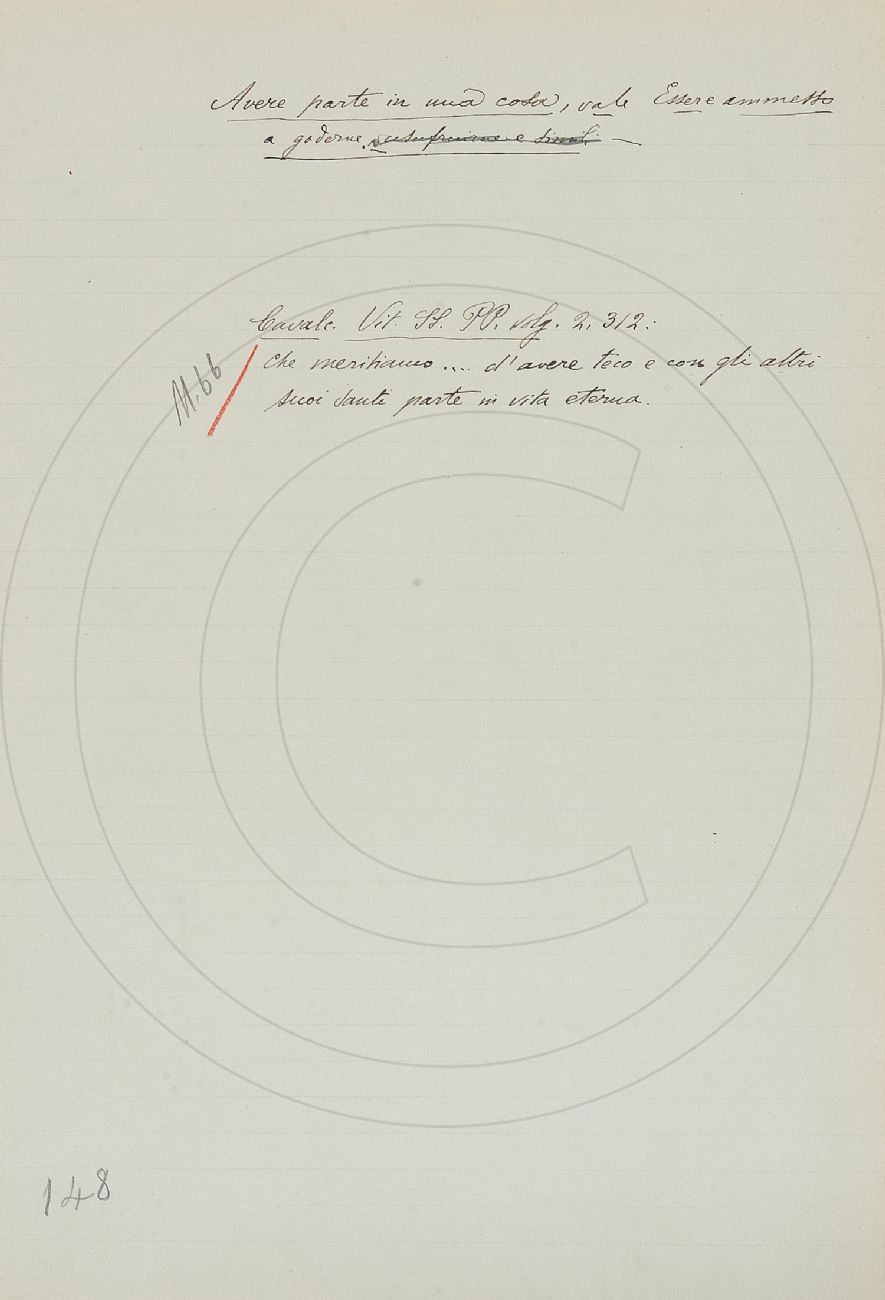 Avere parte in una cosa, vale Essere ammesso
a goderne, usufruirne e simili. —
Cavalc. Vit. SS. PP. volg. 2. 312.:
M.66
che meritiamo .... d'avere teco e con gli altri
suoi santi parte in vita eterna.
148